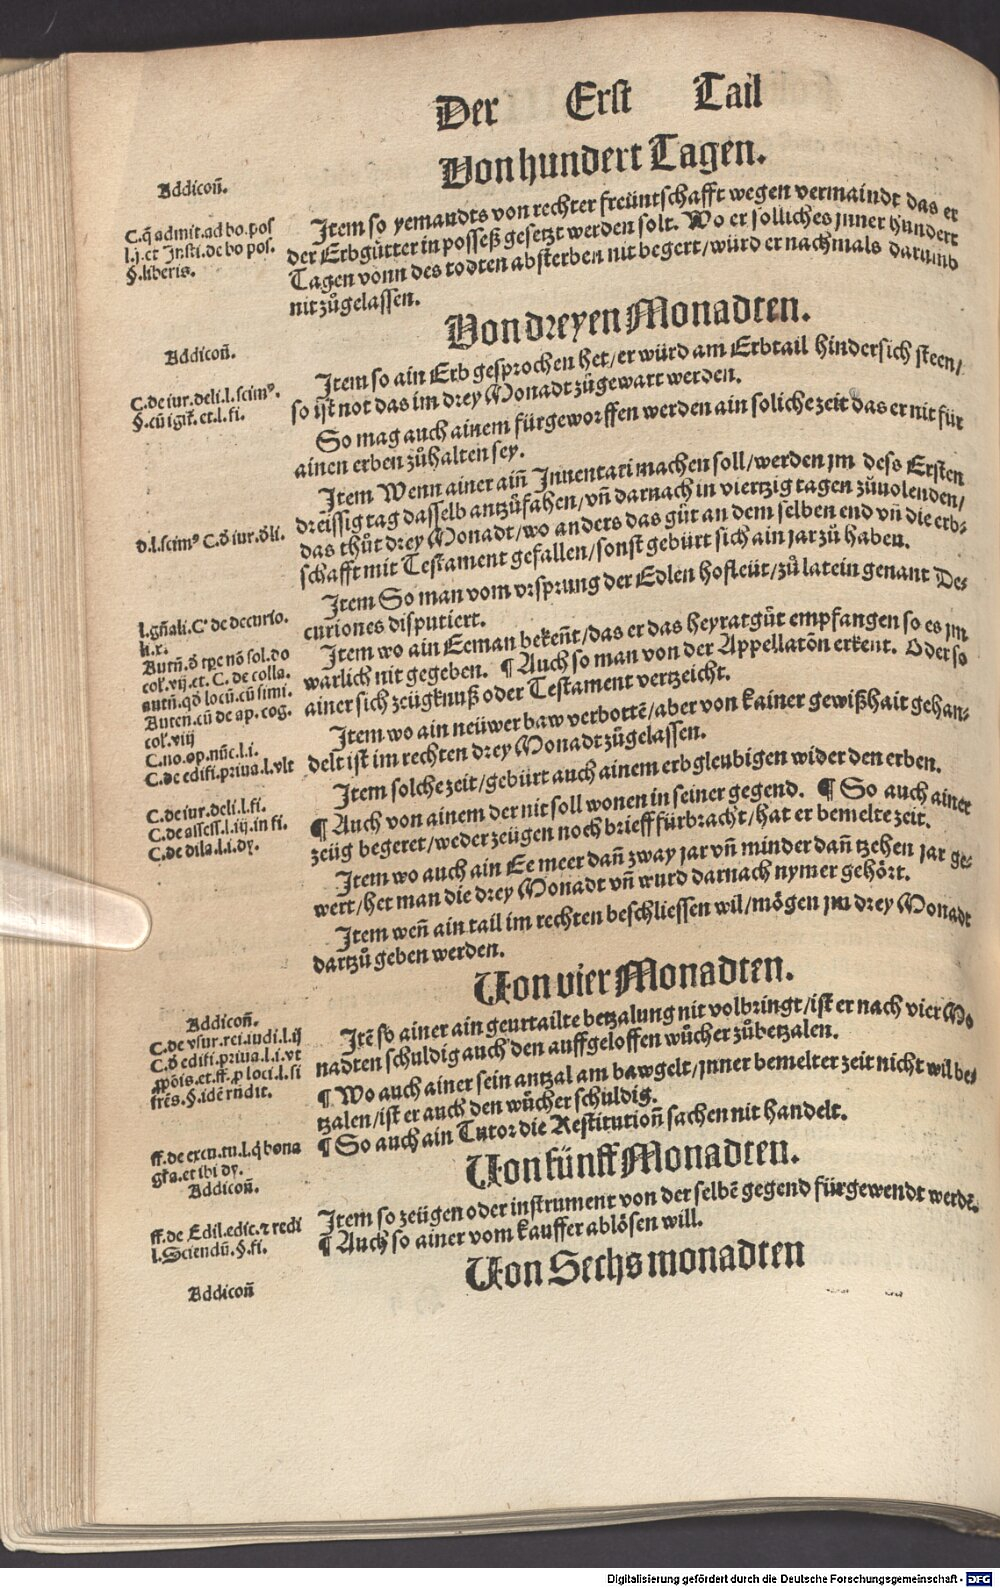 Der Erst Tail
Von hundert Tagen.
Addicoñ.
C.q̃ admit.ad bo.pos
l.j.et Insti.de bo pos.
§.liberis.
Item so yemandts von rechter freüntschafft wegen vermaindt das er
der Erbgütter in posseß gesetzt werden solt. Wo er solliches jnner hundert
Tagen vonn des todten absterben nit begert/würd er nachmals darumb
nit zůgelassen.
Von dreyen Monadten.
Addicoñ.
C.de iur.deli.l.scimꝰ.
§.cũ igit̃.et.l.fi.
Item so ain Erb gesprochen het/er würd am Erbtail hindersich steen/
so ist not das im drey Monadt zůgewart werden.
So mag auch ainem fürgeworffen werden ain soliche zeit das er nit für
ainen erben zůhalten sey.
Item Wenn ainer aiñ Innentari machen soll/werden jm dess Ersten
dreissig tag dasselb antzůfahen/vñ darnach in viertzig tagen zůuolenden/
das thůt drey Monadt/wo anders das gůt an dem selben end vñ die erb⸗
schafft mit Testament gefallen/sonst gebürt sich ain jar zů haben.
d.l.scimꝰ C.õ iur.õli.
Item So man vom vrsprung der Edlen hofleüt/zů latein genant De⸗
curiones disputiert.
l.gñali.C' de decurio.
li.x.
Item wo ain Eeman bekeñt/das er das heyratgůt empfangen so es jm
warlich nit gegeben. ¶ Auch so man von der Appellatõn erkent. Oder so
ainer sich zeügknuß oder Testament vertzeicht.
Autñ.õ tpe nõ sol.do
col̃.vij.et. C. de colla.
autñ.qõ locũ.cũ simi.
Auten.cũ de ap. cog.
col̃.viij
Item wo ain neüwer baw verbottẽ/aber von kainer gewißhait gehan⸗
delt ist im rechten drey Monadt zůgelassen.
C.no.op.nũc.l.i.
C.de edifi.priua.l.vlt
Item solche zeit/gebürt auch ainem erbgleubigen wider den erben.
¶ Auch von ainem der nit soll wonen in seiner gegend. ¶ So auch ainer
zeüg begeret/weder zeügen noch brieff fürbracht/hat er bemelte zeit.
C.de iur.deli.l.fi.
C.de assess.l.iij.in fi.
C.de dila.l.i.dy.
Item wo auch ain Ee meer dañ zway jar vñ minder dañ tzehen jar ge⸗
wert/het man die drey Monadt vñ wurd darnach nymer gehört.
Item weñ ain tail im rechten beschliessen wil/mögen jm drey Monadt
dartzů geben werden.
Von vier Monadten.
Addicoñ.
C.de vsur.rei.iudi.l.ij
C.õ edifi.priua.l.i.vt
ꝓpõis.et.ff.ꝓ loci.l.si
frẽs.§.idẽ rñdit.
Itẽ so ainer ain geurtailte betzalung nit volbringt/ist er nach vier Mo
nadten schuldig auch den auffgeloffen wůcher zůbetzalen.
¶ Wo auch ainer sein antzal am bawgelt/jnner bemelter zeit nicht wil be⸗
tzalen/ist er auch den wůcher schuldig.
¶ So auch ain Tutor die Restitutioñ sachen nit handelt.
ff.de excu.tu.l.q̃ bona
gr̃a.et ibi dy.
Von fünff Monadten.
Addicoñ.
Item so zeügen oder instrument von der selbẽ gegend fürgewendt werdẽ.
¶ Auch so ainer vom kauffer ablösen will.
ff.de Edil.edic.⁊ redi
l.Sciendũ.§.fi.
Von Sechs monadten
Addicoñ
Digitalisierung gefördert durch die Deutsche Forschungsgemeinschaft - DFG